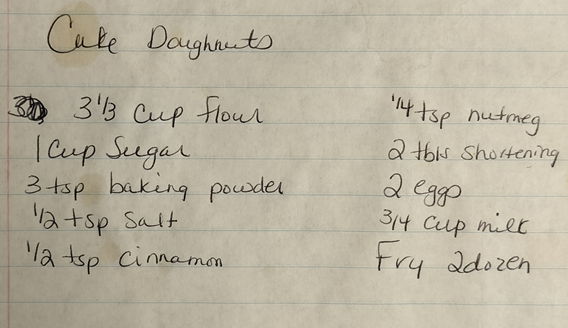 Cake Doughnuts
3 1/3 Cup flour
1 Cup Sugar
3 tsp baking powder
1/2 tsp Salt
1/2 tsp Cinnamon
1/4 tsp nutmeg
2 tbls Shortening
2 eggs
3/4 Cup milk
Fry 2dozen